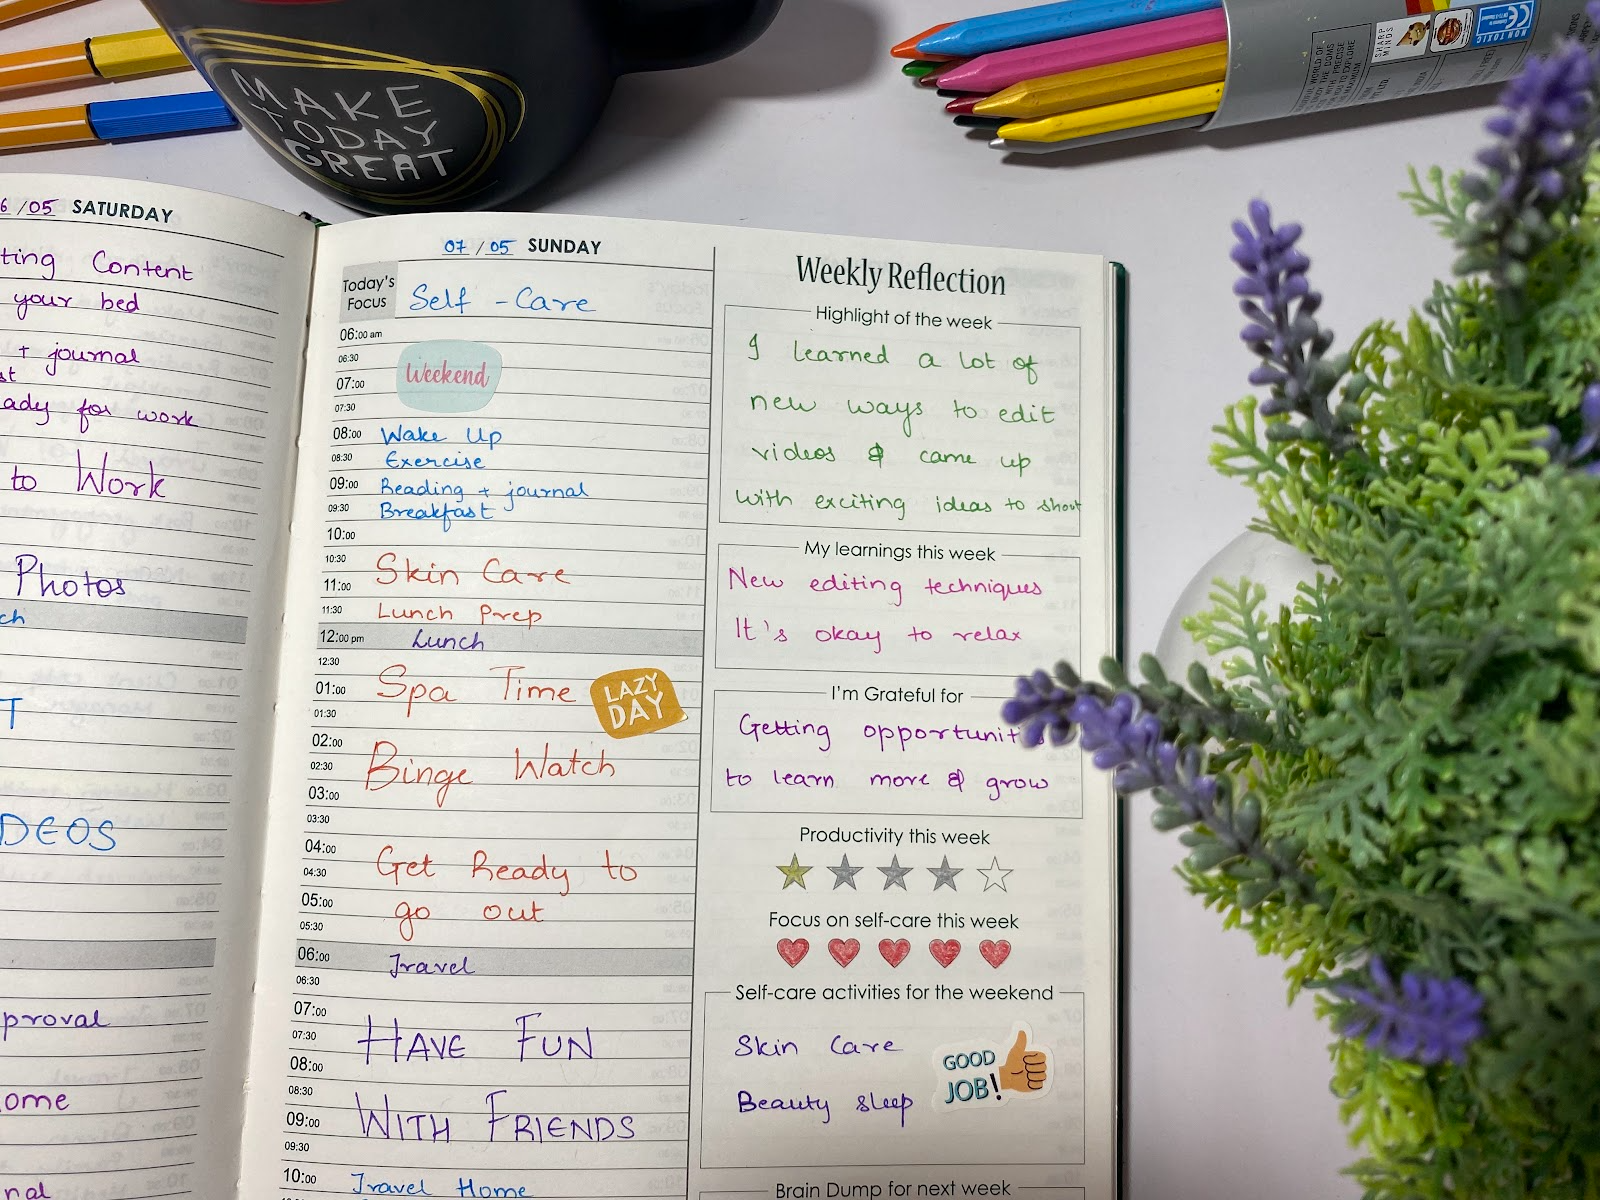 MAKE
TODAY
GREAT
SHARP
MINDS
NON TOXIC
6/05 SATURDAY
ting Content
your bed
+ journal
st
ady for work
to Work
Photos
ch
T
DEOS
proval
ome
nal
07/05 SUNDAY
Today's
Focus
Self-Care
06:00 am
06:30
07:00
Weekend
07:30
08:00 Wake Up
08:30 Exercise
09:00 Reading + journal
09:30 Breakfast
10:00
10:30
Skin Care
11:00
11:30 Lunch Prep
12:00 pm Lunch
12:30
01:00 Spa Time
LAZY
DAY
01:30
02:00
02:30 Binge Watch
03:00
03:30
04:00
Get Ready to
04:30
05:00 go out
05:30
06:00 Travel
06:30
07:00
07:30 HAVE FUN
08:00
08:30
09:00 WITH FRIENDS
09:30
10:00 Travel Home
Weekly Reflection
Highlight of the week
I learned a lot of
new ways to edit
videos & came up
with exciting ideas to shoot
My learnings this week
New editing techniques
It's okay to relax
I'm Grateful for
Getting opportunit s
to learn more & grow
Productivity this week
Focus on self-care this week
Self-care activities for the weekend
Skin Care
Beauty sleep
GOOD
JOB!
Brain Dump for next week